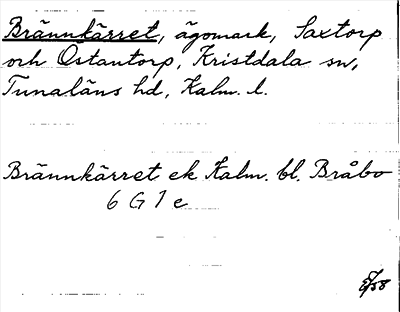 Brännkärret, ägomark, Saxtorp
och Östantorp, Kristdala sn,
Tunaläns hd, Kalm. l.
Brännkärret ek Kalm. bl. Bråbo
6 G 1 e